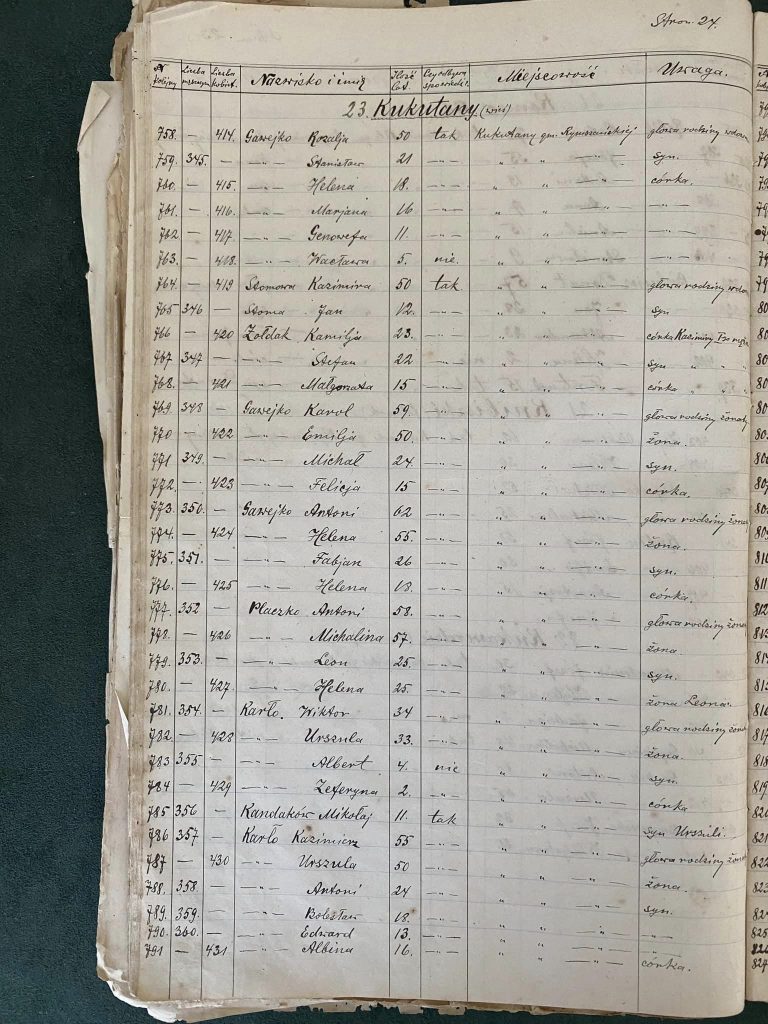 Stron. 24.
N kolejny Liczba mężczyzn Liczba kobiet. Nazwisko i imię Ilość lat. Czy odbywa spowiedź? Miejscowość Uwaga.
23. Kukutany. (wieś)
758. — 414. Gawejko Rozalja 50 tak Kukutany gm. Rymszańskiej głowa rodziny wdowa
759. 345. — — „ — Stanisław 21 — „ — „ „ — „ — syn.
760. — 415. — „ — Helena 18. — „ — „ „ — „ — córka.
761. — 416. — „ — Marjana 16 — „ — „ „ — „ — — „ —
762 — 417. — „ — Genowefa 11. — „ — „ „ — „ — — „ —
763. — 418. — „ — Wacława 5. nie. „ „ — „ — — „ —
764. — 419 Stomowa Kazimira 50 tak. „ „ — „ — głowa rodziny wdowa
765 346 — Stoma Jan 12. — „ — „ „ — „ — syn
766 — 420 Żołdak Kamilja 23. — „ — „ „ — „ — córka Kazimiry
767 347 — — „ — Stefan 22 — „ — „ „ — „ — syn „ „
768. — 421 — „ — Małgorzata 15 — „ — „ „ — „ — córka „ „
769. 348 — Gawejko Karol 59. — „ — „ „ — „ — głowa rodziny żonaty
770 — 422 — „ — Emilja 50. — „ — „ „ — „ — żona.
771 349. — — „ — Michał 24. — „ — „ „ — „ — syn.
772. — 423 — „ — Felicja 15 — „ — „ „ — „ — córka.
773. 350. — Gawejko Antoni 62 — „ — „ „ — „ — głowa rodziny żonaty
774. — 424 — „ — Helena 55. — „ — „ „ — „ — żona.
775. 351. — — „ — Fabjan 26 — „ — „ „ — „ — syn.
776. — 425 — „ — Helena 18. — „ — „ „ — „ — córka.
777. 352 — Płaczko Antoni 58. — „ — „ „ — „ — głowa rodziny żonaty
778. — 426 — „ — Michalina 57. — „ — „ „ — „ — żona
779. 353. — — „ — Leon 25. — „ — „ „ — „ — syn.
780. — 427. — „ — Helena 25. — „ — „ „ — „ — żona Leona.
781. 354. — Karło. Wiktor 34 — „ — „ „ — „ — głowa rodziny żonaty
782. — 428 — „ — Urszula 33. — „ — „ „ — „ — żona.
783 355 — — „ — Albert 4. nie „ „ — „ — syn.
784 — 429 — „ — Zeferyna 2. — „ — „ „ — „ — córka
785 356 — Kandaków Mikołaj 11. tak „ „ — „ — syn Urszuli.
786 357 — Karło Kazimierz 55 — „ — „ „ — „ — głowa rodziny żonaty
787 — 430 — „ — Urszula 50 — „ — „ „ — „ — żona.
788. 358. — — „ — Antoni 24 — „ — „ „ — „ — syn.
789. 359. — — „ — Bolesław 18. — „ — „ „ — „ — — „ —
790. 360. — — „ — Edward 13. — „ — „ „ — „ — — „ —
791 — 431 — „ — Albina 16. — „ — „ „ — „ — córka.